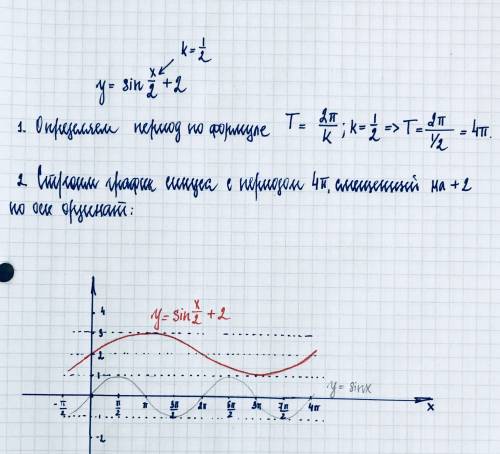 k = 1/2
y = sin x/2 + 2
1. Определяем период по формуле T = 2π/k ; k = 1/2 => T = 2π/1/2 = 4π.
2. Строим график синуса с периодом 4π, смещенный на +2
по оси ординат:
y = sin x/2 + 2
4
3
2
1
y = sinx
-π/2 π/2 π 3π/2 2π 5π/2 3π 7π/2 4π x
-2